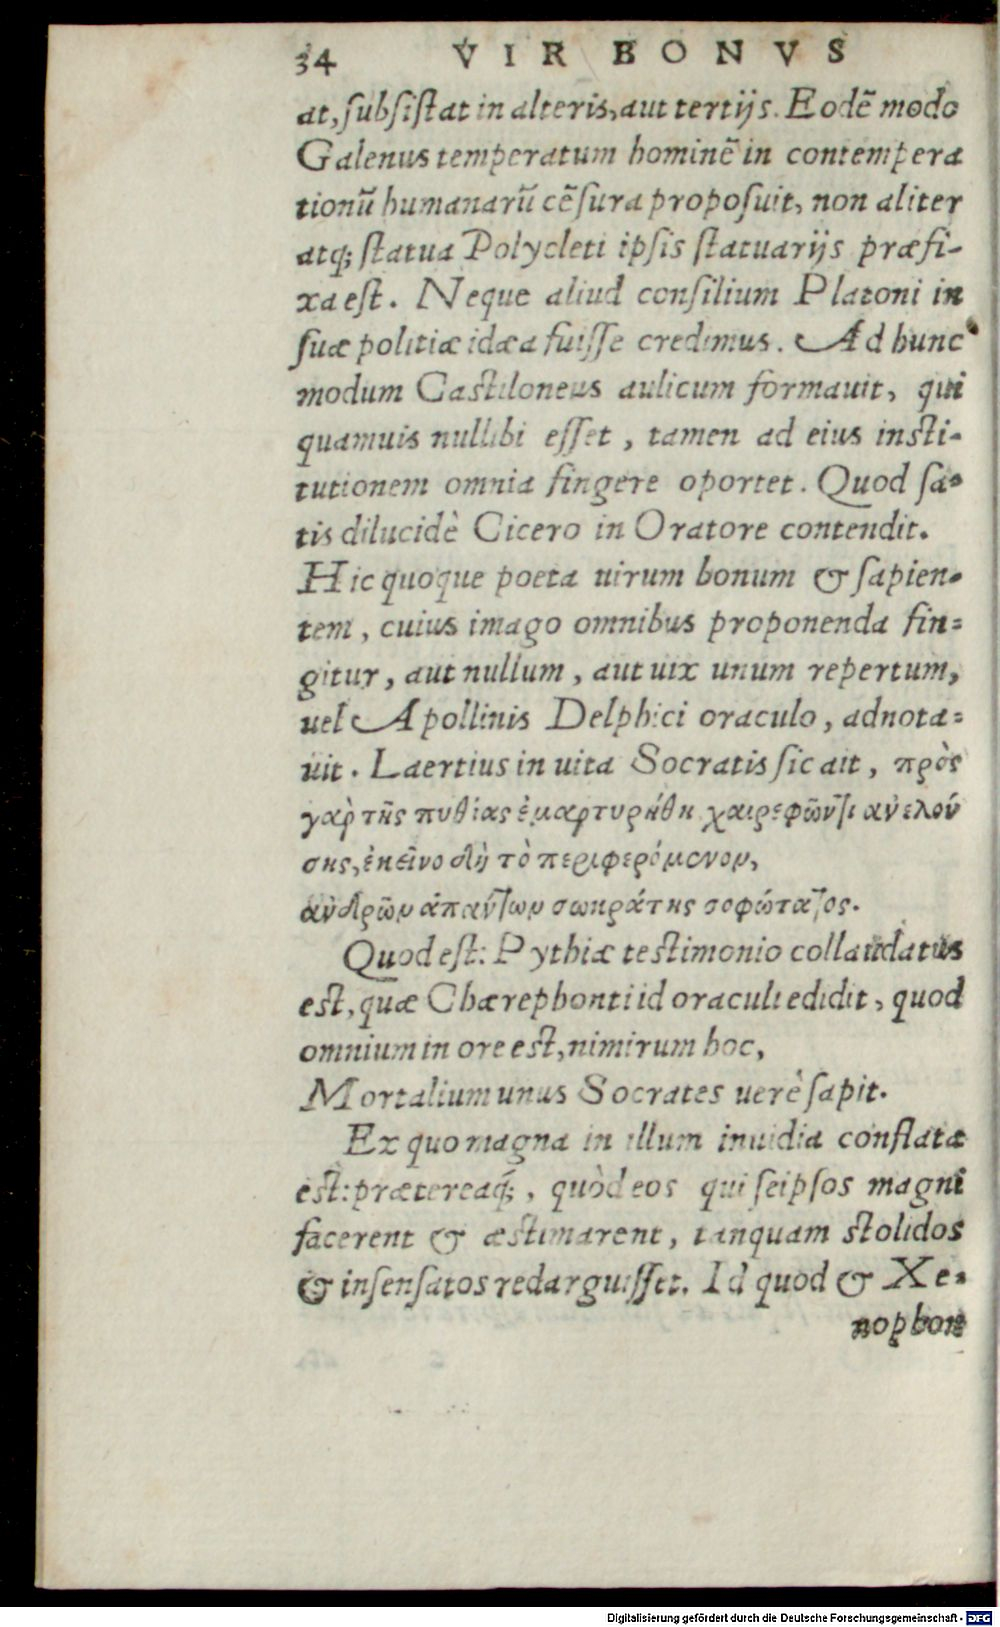 34 VIR BONVS
at, ſubſiſtat in alteris, aut tertijs. Eodē modo
Galenus temperatum hominē in contempera
tionū humanarū cēſura propoſuit, non aliter
atq; ſtatua Polycleti ipſis ſtatuarijs præfi-
xa eſt. Neque aliud conſilium Platoni in
ſuæ politiæ idæa fuiſſe credimus. Ad hunc
modum Caſtiloneus aulicum formauit, qui
quamuis nullibi eſſet, tamen ad eius inſti-
tutionem omnia fingere oportet. Quod ſa-
tis dilucidè Cicero in Oratore contendit.
Hic quoque poeta uirum bonum & ſapien-
tem, cuius imago omnibus proponenda fin=
gitur, aut nullum, aut uix unum repertum,
uel Apollinis Delphici oraculo, adnota=
uit. Laertius in uita Socratis ſic ait, πρὸς
γαρ τῆς πυθίας ἐμαρτυρήθη χαιρεφῶντι ἀνελού
σης, ἐκεῖνο δὴ τὸ περιφερόμενον,
ἀνδρῶν ἁπάντων σωκράτης σοφώτατος.
Quod eſt: Pythiæ teſtimonio collaudatus
eſt, quæ Chærephonti id oraculi edidit, quod
omnium in ore eſt, nimirum hoc,
Mortalium unus Socrates uerè ſapit.
Ex quo magna in illum inuidia conflata
eſt: prætereaq́;, quòd eos qui ſeipſos magni
facerent & æſtimarent, tanquam ſtolidos
& inſenſatos redarguiſſet. Id quod & Xe-
nophon
Digitalisierung gefördert durch die Deutsche Forschungsgemeinschaft - DFG